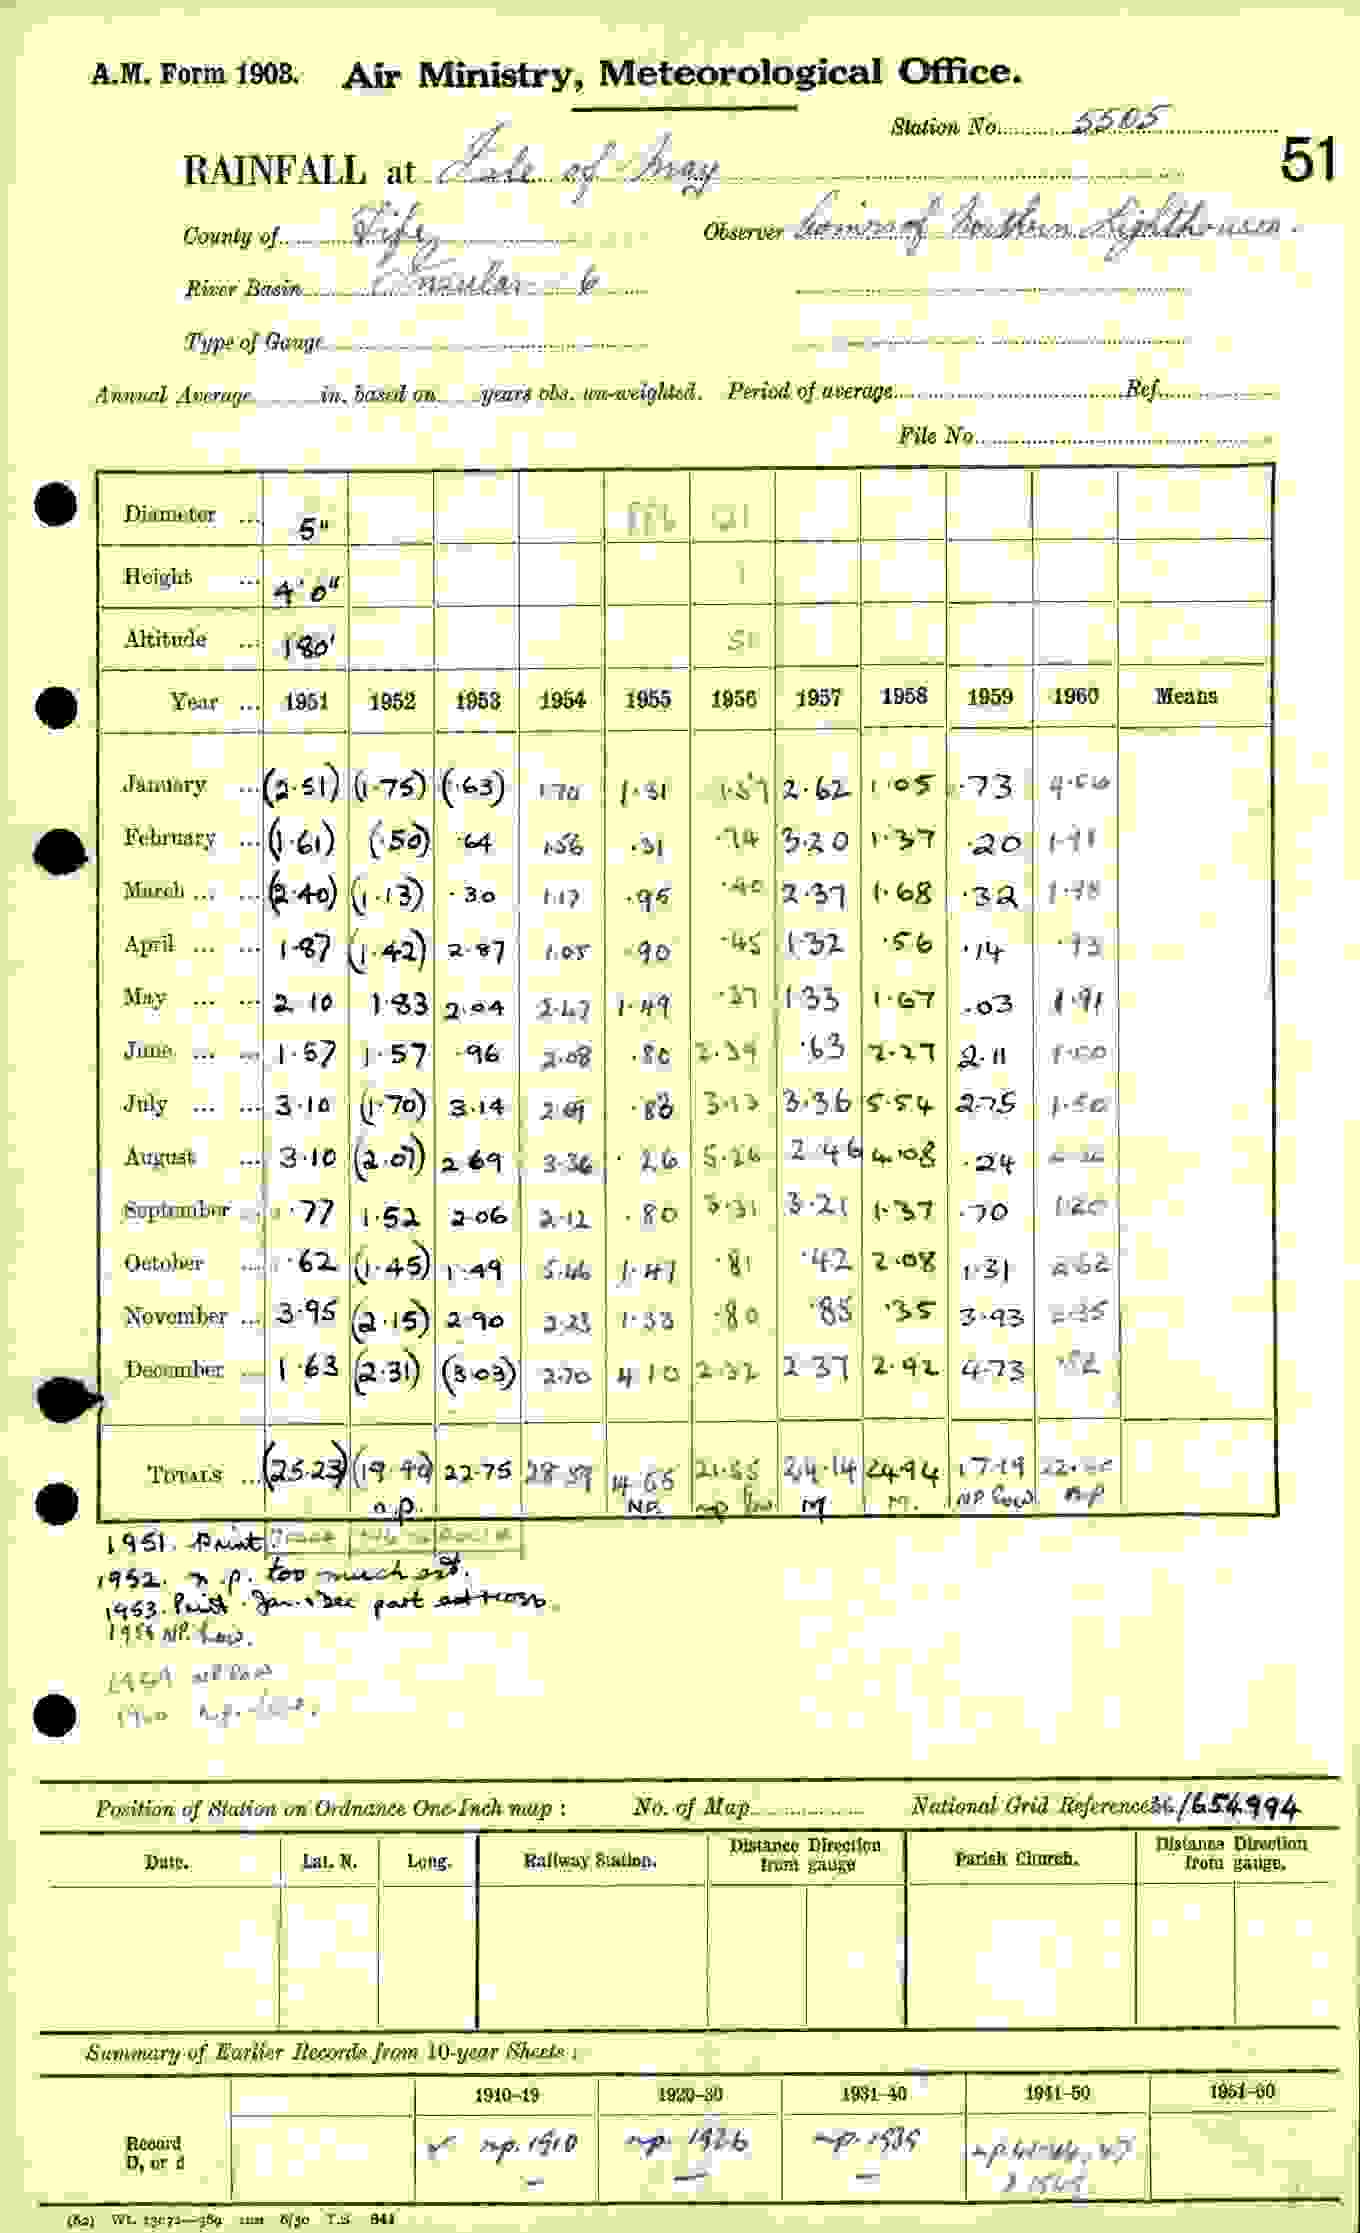 A.M. Form 1903. Air Ministry, Meteorological Office.
Station No. 5505
51
RAINFALL at Isle of May
County of Fife Observer Commrs of Northern Lighthouses.
River Basin Insular 6
Type of Gauge
Annual Average in. based on years obs. un-weighted. Period of average Ref.
File No.
Diameter ... 5"
Height ... 4' 0"
Altitude ... 180'
Year ... 1951 1952 1953 1954 1955 1956 1957 1958 1959 1960 Means
January ... (2.51) (1.75) (.63) 1.70 1.31 1.57 2.62 1.05 .73
February ... (1.61) (.50) .64 1.58 .31 .74 3.20 1.37 .20 1.91
March ... ... (2.40) (1.13) .30 1.17 .95 .40 2.37 1.68 .32
April ... ... 1.87 (1.42) 2.87 1.05 .90 .45 1.32 .56 .14 .93
May ... ... 2.10 1.83 2.04 2.47 1.49 .37 1.33 1.67 .03 1.91
June ... ... 1.57 1.57 .96 2.08 .80 2.39 .63 2.27 2.11
July ... ... 3.10 (1.70) 3.14 2.09 3.13 3.36 5.54 2.75 1.50
August ... 3.10 (2.07) 2.69 3.36 .26 5.26 2.46 4.08 .24
September ... .77 1.52 2.06 2.12 .80 3.31 3.21 1.37 .70 1.20
October ... .62 (1.45) 1.49 5.46 1.47 .81 .42 2.08 1.31 2.62
November ... 3.95 (2.15) 2.90 2.23 1.33 .80 .85 .35 3.93 2.35
December ... 1.63 (2.31) (3.03) 2.70 4.10 2.32 2.37 2.92 4.73 .52
TOTALS ... (25.23) (19.40) 22.75 14.65 21.55 24.14 24.94 17.19
n.p. NP. np low M M. NP low n.p
1951. Print.
1952. n.p. too much est.
1953. Print. Jan. & Dec part
NP. Low.
1959 NP low
1960 n.p. low.
Position of Station on Ordnance One-Inch map : No. of Map National Grid Reference 36/654994
Date. Lat. N. Long. Railway Station. Distance Direction from gauge Parish Church. Distance Direction from gauge.
Summary of Earlier Records from 10-year Sheets :
1910–19 1920–30 1931–40 1941–50 1951–60
Record D, or d np. 1910 np. 1926 np. 1935